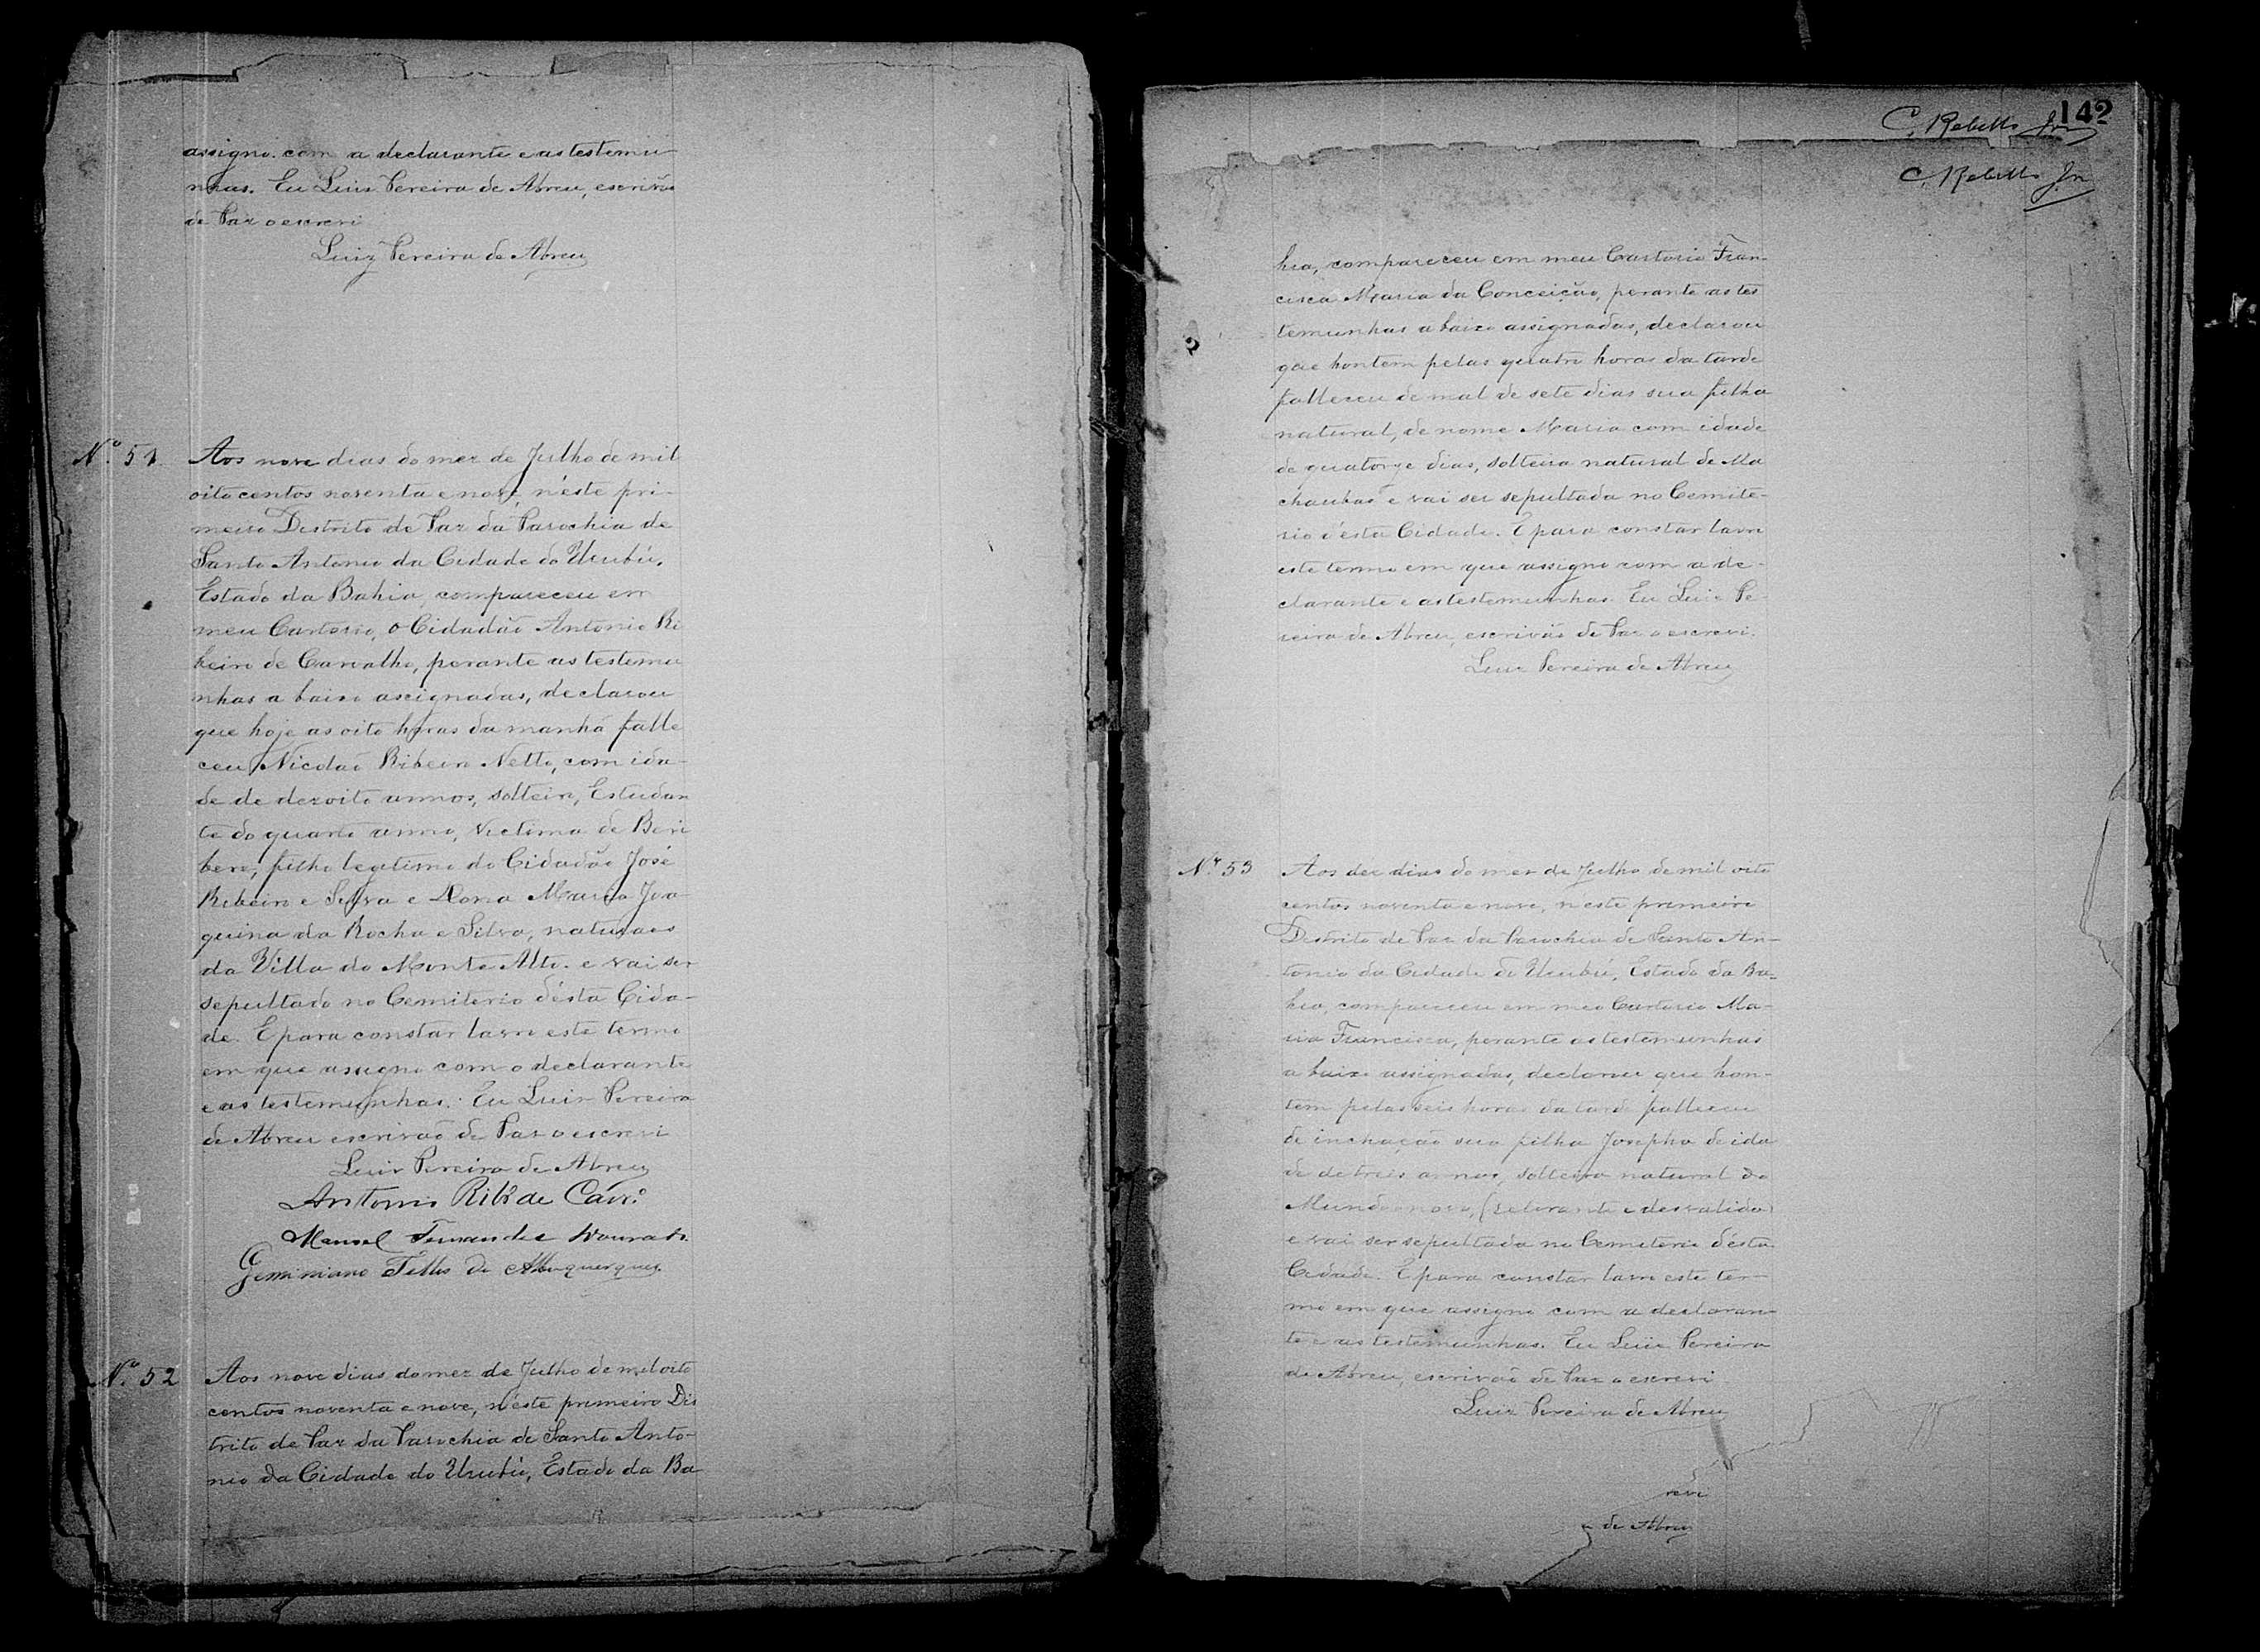 assigno com a declarante e as testemu-
nhas. Eu Luiz Pereira de Abreu, escrivão
de Paz o escrevi
Luiz Pereira de Abreu
Nº 51
Aos nove dias do mez de Julho de mil
oito centos noventa e nove, n'este pri-
meiro Districto de Paz da Parochia de
Santo Antonio da Cidade do Urubú,
Estado da Bahia, compareceu em
meu Cartorio, o Cidadão Antonio Ri
beiro de Carvalho, perante as testemu
nhas a baixo assignadas, declarou
que hoje as oito horas da manhã falle
ceu Nicoláo Ribeiro Netto, com ida-
de de dezoito annos, solteiro, Estudan
te do quarto anno, victima de Beri
bere, filho legitimo do Cidadão José
Ribeiro e Silva e Dona Maria Joa-
quina da Rocha e Silva, naturaes
da Villa do Monte Alto. e vai ser
sepultado no Cemiterio d'ésta Cida-
de. E para constar lavro este termo
em que assigno com o declarante
e as testemunhas. Eu Luiz Pereira
de Abreu escrivão de Paz o escrevi
Luiz Pereira de Abreu
Antonio Ribº de Carvº
Manoel Fernandes Dourado
Geminiano Telles de Albuquerque
Nº 52
Aos nove dias do mez de Julho de mil oito
centos noventa e nove, n'éste primeiro Dis
trito de Paz da Parochia de Santo Anto-
nio da Cidade do Urubú, Estado da Ba
142
C. Rebello Jor
C. Rebello Jor
hia, compareceu em meu Cartorio Fran-
cisca Maria da Conceição, perante as tes
temunhas a baixo assignadas, declarou
que hontem pelas quatro horas da tarde
falleceu de mal de sete dias sua filha
natural, de nome Maria com idade
de quatorze dias, solteira natural de Ma
chaubas e vai ser sepultada no Cemite-
rio d'ésta Cidade. E para constar lavro
este termo em que assigno com a de-
clarante e as testemunhas. Eu Luiz Pe-
reira de Abreu, escrivão de Paz o escrevi.
Luiz Pereira de Abreu
Nº 53
Aos dez dias do mez de Julho de mil oito
centos noventa e nove, n'este primeiro
Distrito de Paz da Parochia de Santo An-
tonio da Cidade do Urubú, Estado da Ba-
hia, compareceu em meo Cartorio Ma-
ria Francisca, perante as testemunhas
a baixo assignadas, declarou que hon-
tem pelas seis horas da tarde falleceu
de inchação sua filha Josepha de ida
de de treis annos, solteira natural do
Mundo novo, (retirante e desvalida)
e vai ser sepultada no Cemiterio d'ésta
Cidade. E para constar lavro este ter-
mo em que assigno com a declaran-
te e as testemunhas. Eu Luiz Pereira
de Abreu, escrivão de Paz o escrevi
Luiz Pereira de Abreu
revi
a de Abreu